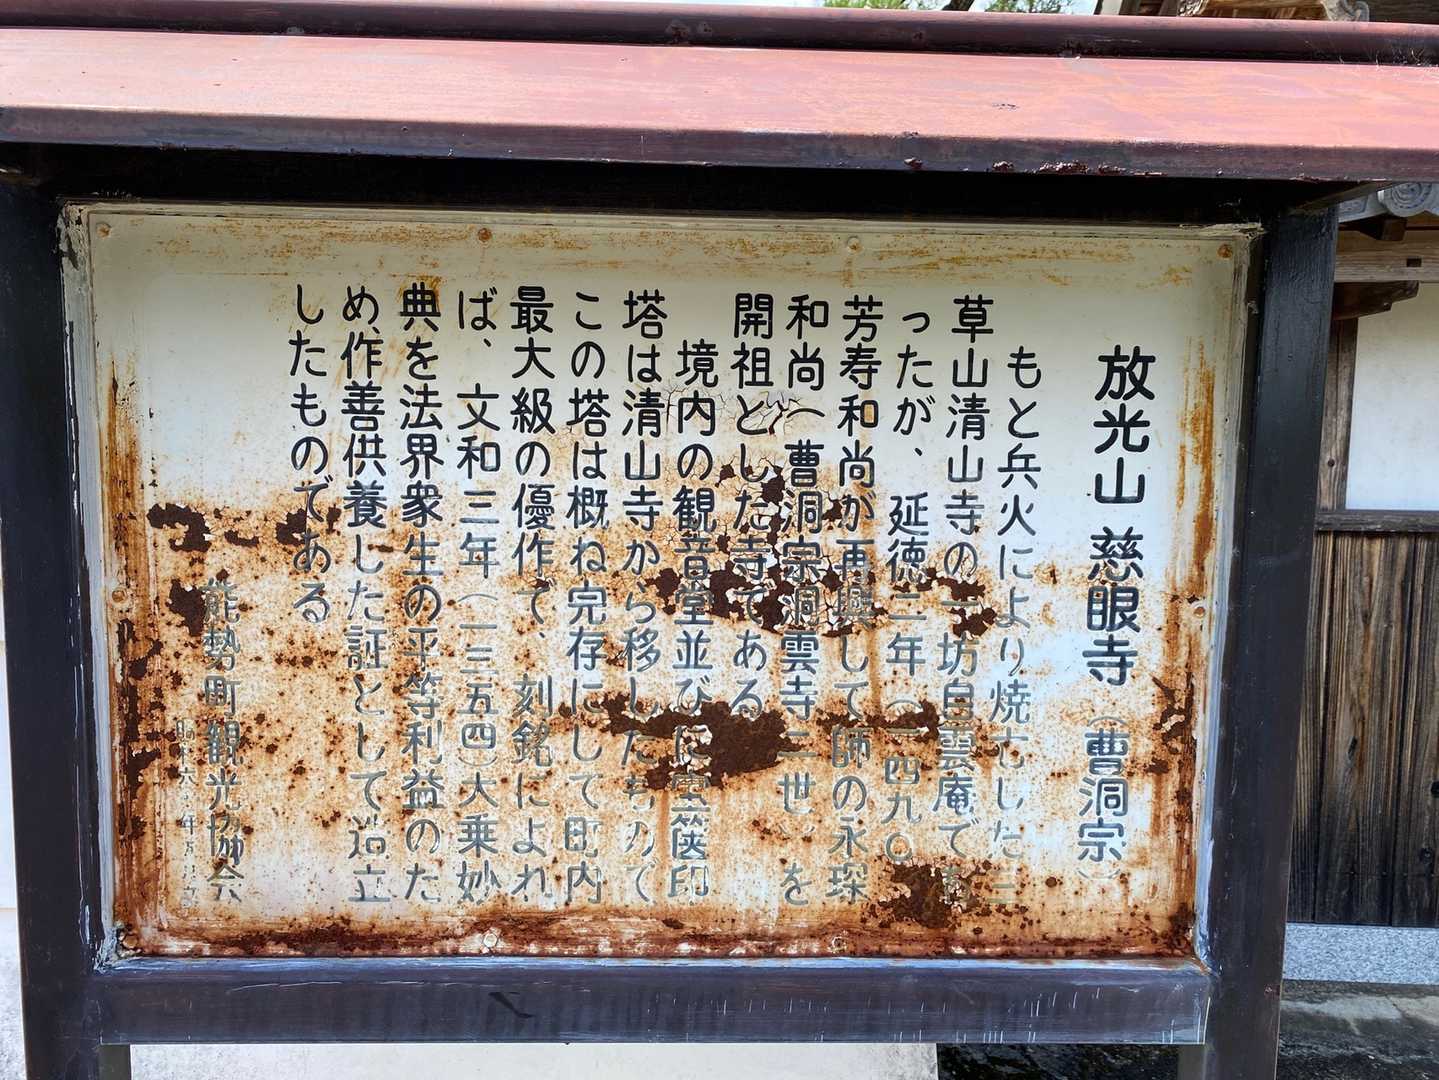 放光山 慈眼寺（曹洞宗）
もと兵火により焼亡した三
草山清山寺の一坊自雲庵であ
ったが、延徳二年（一四九〇
芳寿和尚が再興して師の永琛
和尚（曹洞宗洞雲寺二世）を
開祖とした寺である
境内の観音堂並びに宝篋印
塔は清山寺から移したもので
この塔は概ね完存にして町内
最大級の優作で、刻銘によれ
ば、文和三年（一三五四）大乗妙
典を法界衆生の平等利益のた
め、作善供養した証として造立
したものである
能勢町観光協会
昭和六 年